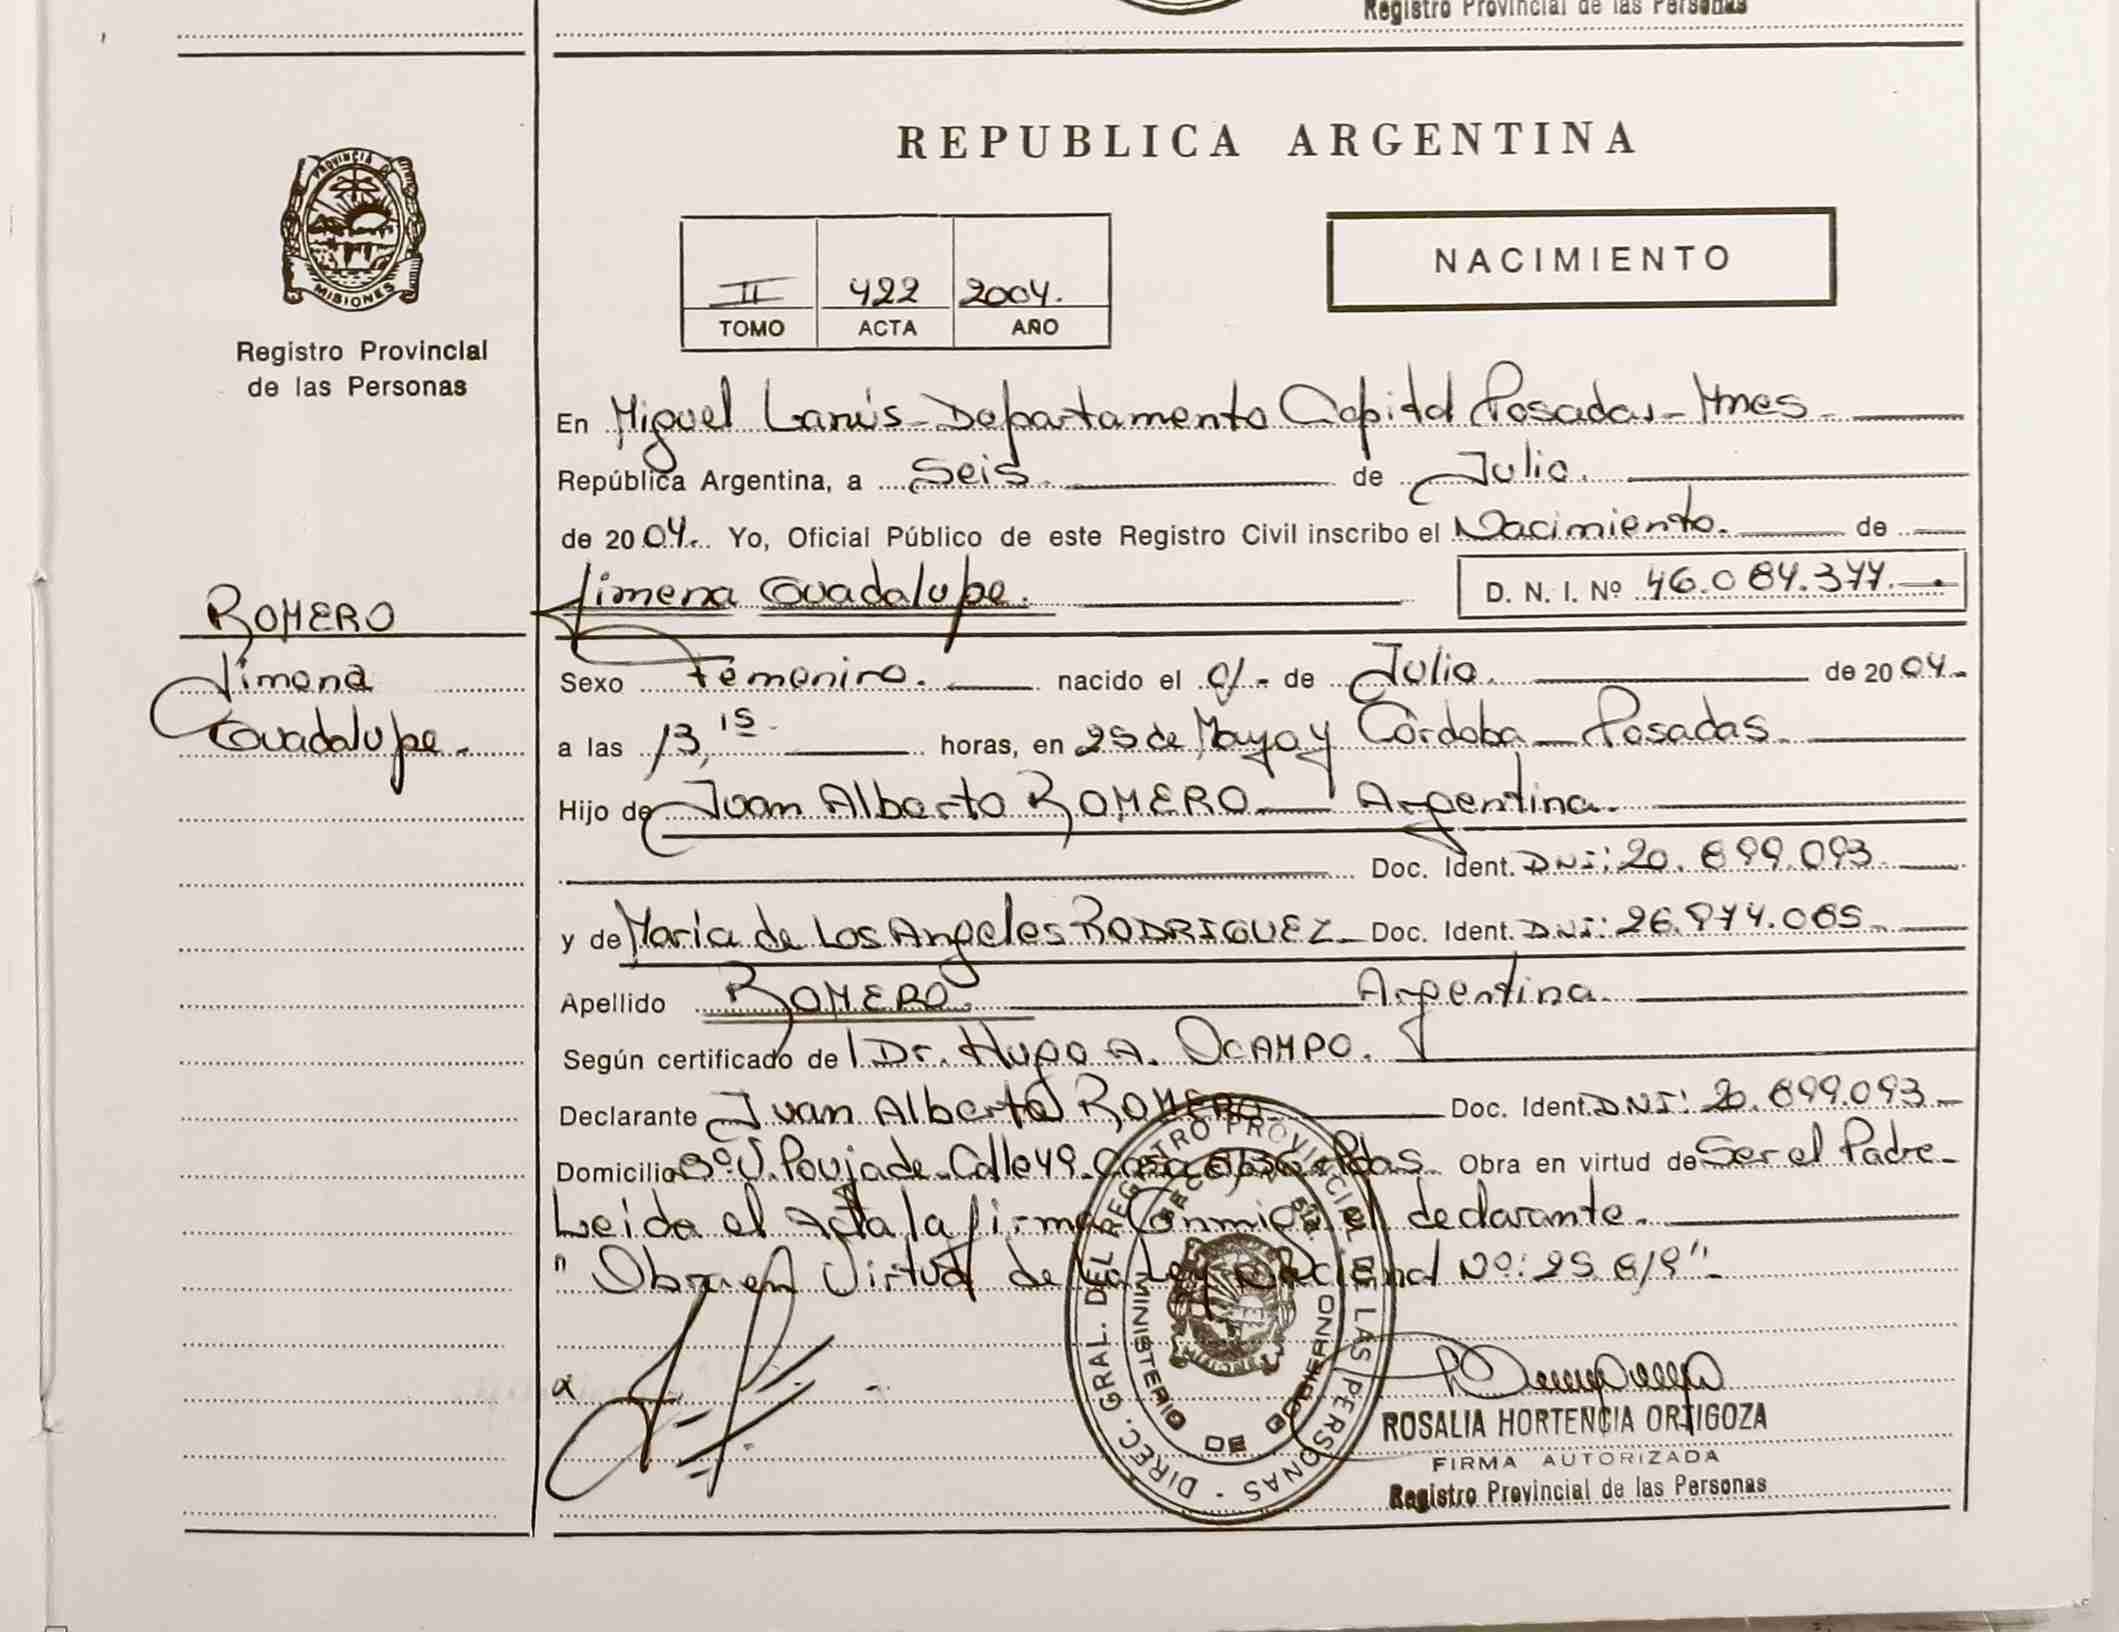 Registro Provincial de las Personas
PROVINCIA DE
MISIONES
Registro Provincial
de las Personas
REPUBLICA ARGENTINA
NACIMIENTO
II 422 2004.
TOMO ACTA AÑO
En Miguel Lanús - Departamento Capital Posadas - Mnes
República Argentina, a Seis de Julio.
de 2004. Yo, Oficial Público de este Registro Civil inscribo el Nacimiento. de
Jimena Guadalupe. D. N. I. Nº
ROMERO
Jimena
Guadalupe.
Sexo Femenino. nacido el 01 - de Julio de 2004.
a las 13,15 horas, en 25 de Mayo y Córdoba - Posadas
Hijo de Juan Alberto ROMERO - Argentina.
Doc. Ident. DNI: 20.
y de María de Los Angeles RODRIGUEZ - Doc. Ident. DNI: 26.
Apellido ROMERO. Argentina
Según certificado de Dr. Hugo A. OCAMPO.
Declarante Juan Alberto ROMERO Doc. Ident. DNI: 20.
Domicilio Bº J. Poujade - Calle 49 - Casa Pdas. Obra en virtud de Ser el Padre -
Leida el Acta la firma Conmigo el declarante.
" Obra en Virtud de La Ley Nacional Nº: 25.819" -
DIREC. GRAL. DEL REGISTRO PROVINCIAL DE LAS PERSONAS -
MINISTERIO DE GOBIERNO
ROSALIA HORTENCIA ORTIGOZA
FIRMA AUTORIZADA
Registro Provincial de las Personas